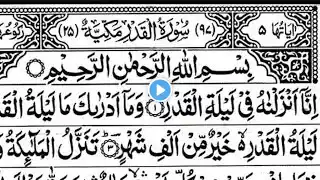 اٰيَاتُهَا ٥ (٩٧) سُوْرَةُ الْقَدْرِ مَكِّيَّةٌ (٢٥)
بِسْمِ اللّٰهِ الرَّحْمٰنِ الرَّحِيْمِ
اِنَّآ اَنْزَلْنٰهُ فِيْ لَيْلَةِ الْقَدْرِ ١ وَمَآ اَدْرٰىكَ مَا لَيْلَةُ
لَيْلَةُ الْقَدْرِ خَيْرٌ مِّنْ اَلْفِ شَهْرٍ ٣ تَنَزَّلُ الْمَلٰٓئِكَةُ